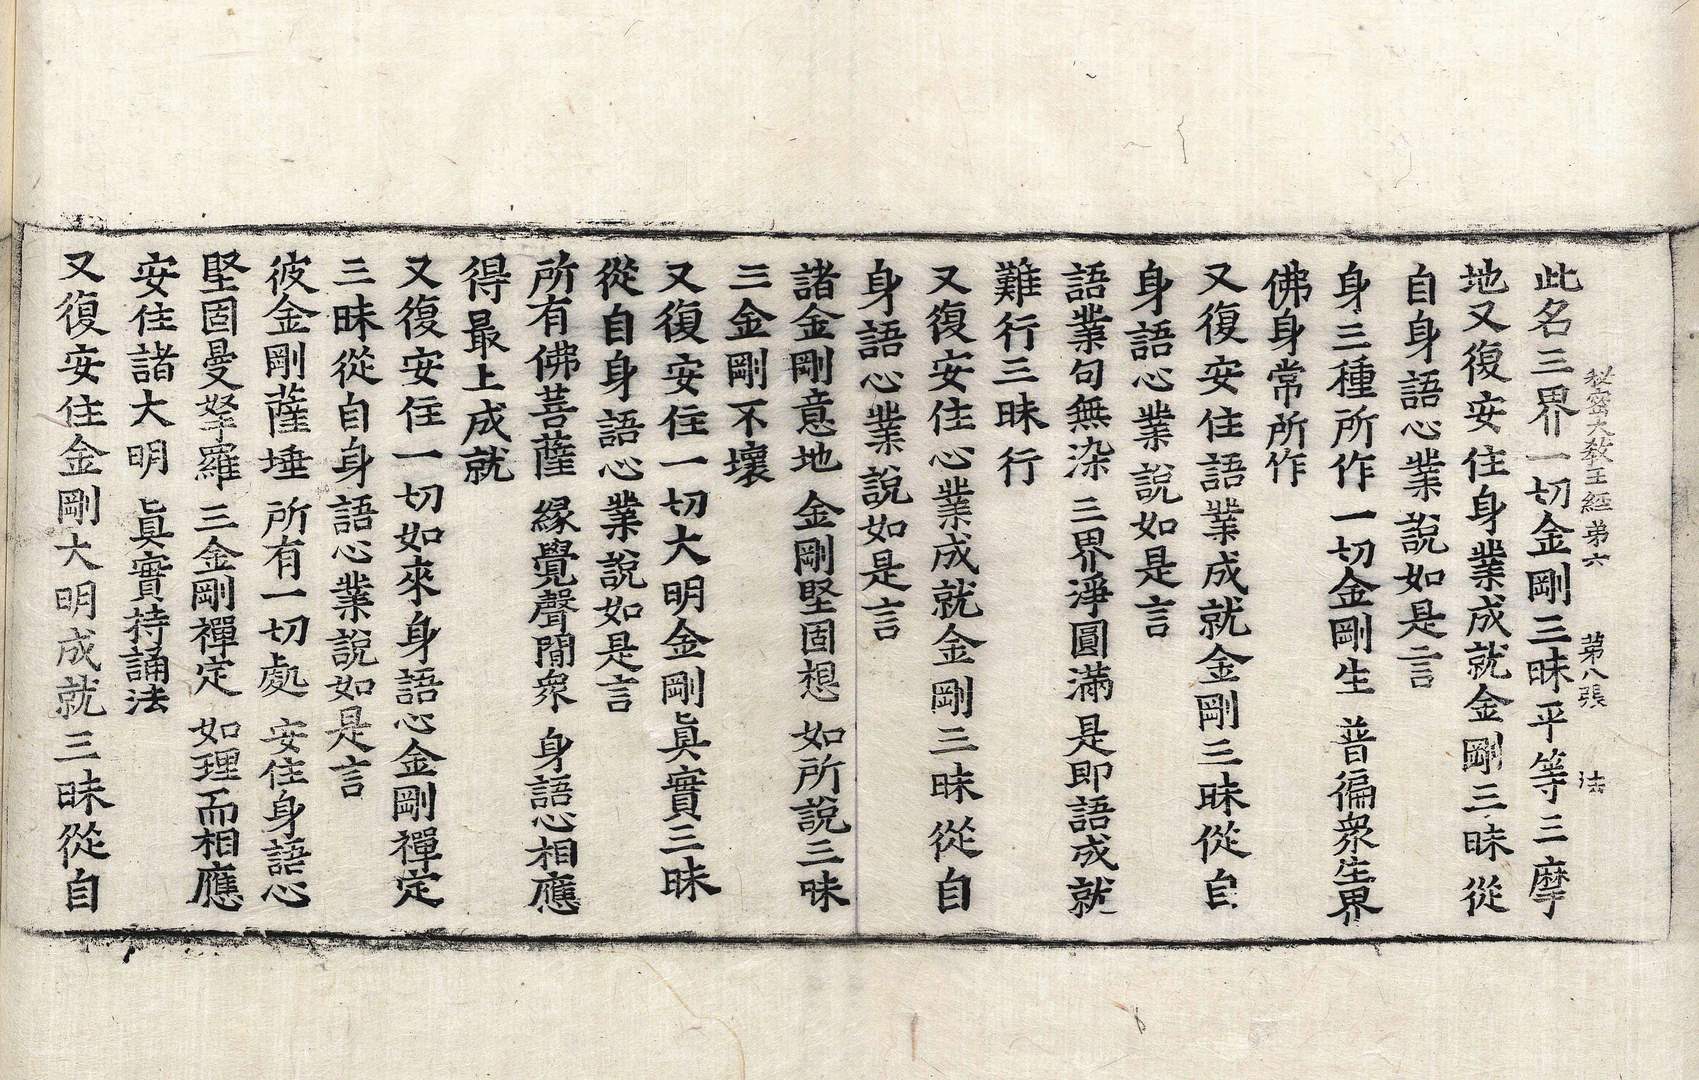 秘密大教王經第六 第八張 法
此名三界一切金剛三昧平等三摩
地又復安住身業成就金剛三昧從
自身語心業說如是言
身三種所作 一切金剛生 普徧衆生界
佛身常所作
又復安住語業成就金剛三昧從自
身語心業說如是言
語業句無染 三界淨圓滿 是即語成就
難行三昧行
又復安住心業成就金剛三昧從自
身語心業說如是言
諸金剛意地 金剛堅固想 如所說三昧
三金剛不壞
又復安住一切大明金剛眞實三昧
從自身語心業說如是言
所有佛菩薩 緣覺聲聞衆 身語心相應
得最上成就
又復安住一切如來身語心金剛禪定
三昧從自身語心業說如是言
彼金剛薩埵 所有一切處 安住身語心
堅固曼拏羅 三金剛禪定 如理而相應
安住諸大明 眞實持誦法
又復安住金剛大明成就三昧從自